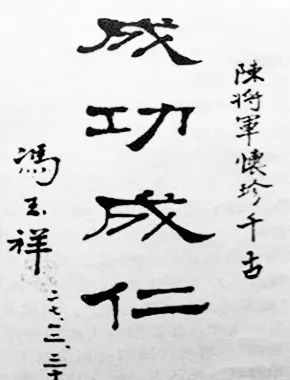 陳將軍懷珍千古
成功成仁
馮玉祥
二七、三、三十